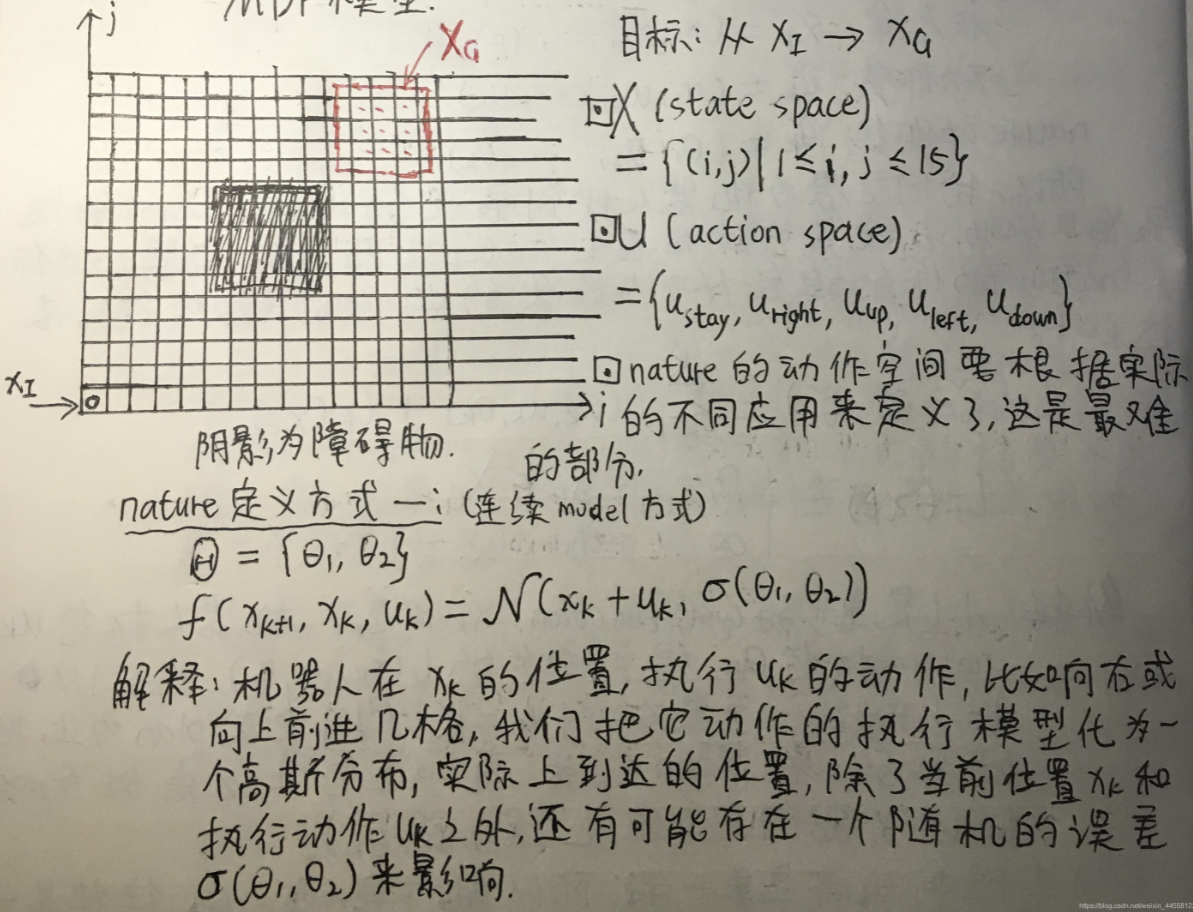 MDP模型.
j
XG
目标: 从 xI → xG
X (state space)
= {(i,j)|1≤i, j≤15}
U (action space)
={ustay, uright, uup, uleft, udown}
nature 的动作空间要根据实际
xI
i
的不同应用来定义了,这是最难
的部分.
阴影为障碍物.
nature 定义方式一: (连续model方式)
Θ = {θ1, θ2}
f(xk+1, xk, uk) = N(xk + uk, σ(θ1, θ2))
解释: 机器人在 xk 的位置, 执行 uk 的动作, 比如向右或
向上前进几格, 我们把它动作的执行模型化为一
个高斯分布, 实际上到达的位置, 除了当前位置 xk 和
执行动作 uk 之外, 还有可能存在一个随机的误差
σ(θ1, θ2) 来影响.